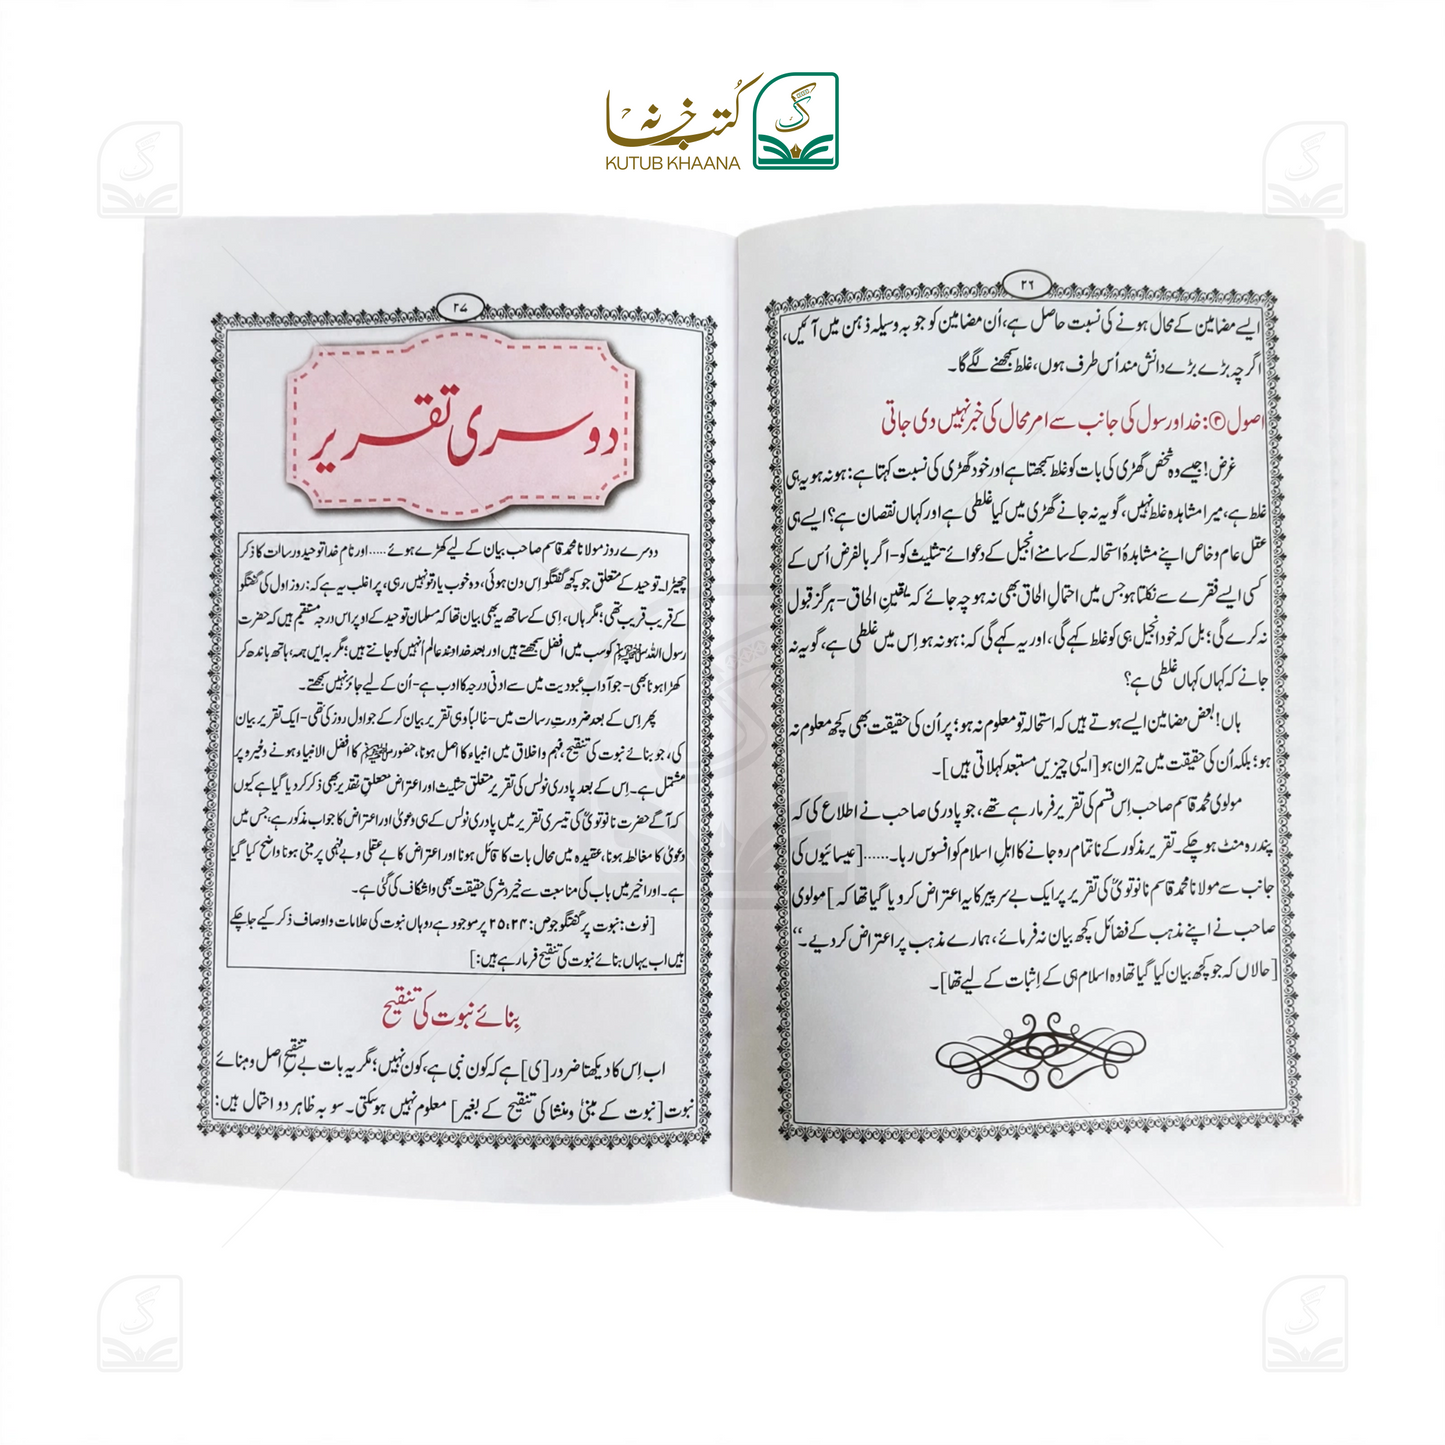 کتب خانہ
KUTUB KHAANA
۲۶
ایسے مضامین کے محال ہونے کی نسبت حاصل ہے، اُن مضامین کو جو بہ وسیلہ ذہن میں آئیں،
اگرچہ بڑے بڑے دانش مند اُس طرف ہوں، غلط سمجھنے لگے گا۔
اصول ③: خدا و رسول کی جانب سے امر محال کی خبر نہیں دی جاتی
غرض! جیسے وہ شخص گھڑی کی بات کو غلط سمجھتا ہے اور خود گھڑی کی نسبت کہتا ہے: ہو نہ ہو یہ ہی
غلط ہے، میرا مشاہدہ غلط نہیں، گو یہ نہ جانے گھڑی میں کیا غلطی ہے اور کہاں نقصان ہے؟ ایسے ہی
عقل عام و خاص اپنے مشاہدۂ استحالہ کے سامنے انجیل کے دعوائے تثلیث کو - اگر بالفرض اُس کے
کسی ایسے فقرے سے نکلتا ہو جس میں احتمالِ الحاق بھی نہ ہو چہ جائے کہ یقینِ الحاق - ہرگز قبول
نہ کرے گی؛ بل کہ خود انجیل ہی کو غلط کہے گی، اور یہ کہے گی کہ: ہو نہ ہو اِس میں غلطی ہے، گو یہ نہ
جانے کہ کہاں کہاں غلطی ہے؟
ہاں! بعض مضامین ایسے ہوتے ہیں کہ استحالہ تو معلوم نہ ہو؛ پر اُن کی حقیقت بھی کچھ معلوم نہ
ہو؛ بلکہ اُن کی حقیقت میں حیران ہو [ایسی چیزیں مستبعد کہلاتی ہیں]۔
مولوی محمد قاسم صاحب اِس قسم کی تقریر فرما رہے تھے، جو پادری صاحب نے اطلاع کی کہ
پندرہ منٹ ہو چکے۔ تقریر مذکور کے ناتمام رہ جانے کا اہلِ اسلام کو افسوس رہا۔ ...... [عیسائیوں کی
جانب سے مولانا محمد قاسم نانوتویؒ کی تقریر پر ایک بے سر پیر کا یہ اعتراض کر دیا گیا تھا کہ] مولوی
صاحب نے اپنے مذہب کے فضائل کچھ بیان نہ فرمائے، ہمارے مذہب پر اعتراض کر دیے۔‘‘
[حالاں کہ جو کچھ بیان کیا گیا تھا وہ اسلام ہی کے اِثبات کے لیے تھا]۔
۲۷
دوسری تقریر
دوسرے روز مولانا محمد قاسم صاحب بیان کے لیے کھڑے ہوئے ..... اور نام خدا توحید و رسالت کا ذکر
چھیڑا۔ توحید کے متعلق جو کچھ گفتگو اِس دن ہوئی، وہ خوب یاد تو نہیں رہی، پر اغلب یہ ہے کہ: روز اول کی گفتگو
کے قریب قریب تھی؛ مگر ہاں، اِسی کے ساتھ یہ بھی بیان تھا کہ مسلمان توحید کے اوپر اس درجہ مستقیم ہیں کہ حضرت
رسول اللہ ﷺ کو سب میں افضل سمجھتے ہیں اور بعد خداوند عالم اُنہیں کو جانتے ہیں؛ مگر بہ ایں ہمہ، ہاتھ باندھ کر
کھڑا ہونا بھی - جو آدابِ عبودیت میں سے ادنی درجہ کا ادب ہے - اُن کے لیے جائز نہیں سمجھتے۔
پھر اِس کے بعد ضرورتِ رسالت میں - غالباً وہی تقریر بیان کر کے جو اول روز کی تھی - ایک تقریر بیان
کی، جو بنائے نبوت کی تنقیح، فہم و اخلاق میں انبیاء کا اصل ہونا، حضور ﷺ کا افضل الانبیاء ہونے وغیرہ پر
مشتمل ہے۔ اِس کے بعد پادری نولس کی تقریر متعلق تثلیث اور اعتراض متعلق تقدیر بھی ذکر کر دیا گیا ہے کیوں
کہ آگے حضرت نانوتویؒ کی تیسری تقریر میں پادری نولس کے ہی دعویٰ اور اعتراض کا جواب مذکور ہے، جس میں
دعویٰ کا مغالطہ ہونا، عقیدہ میں محال بات کا قائل ہونا اور اعتراض کا بے عقلی و بے فہمی پر مبنی ہونا واضح کیا گیا
ہے۔ اور اخیر میں باب کی مناسبت سے خیر و شر کی حقیقت بھی وا شگاف کی گئی ہے۔
[نوٹ: نبوت پر گفتگو جو ص: ۲۴، ۲۵ پر موجود ہے، وہاں نبوت کی علامات و اوصاف ذکر کیے جا چکے
ہیں اب یہاں بنائے نبوت کی تنقیح فرما رہے ہیں:]
بِنائے نبوت کی تنقیح
اب اِس کا دیکھنا ضرور [ی] ہے کہ کون نبی ہے، کون نہیں؛ مگر یہ بات بے تنقیحِ اصل و بنائے
نبوت [نبوت کے مبنیٰ و منشا کی تنقیح کے بغیر] معلوم نہیں ہو سکتی۔ سو بہ ظاہر دو احتمال ہیں: